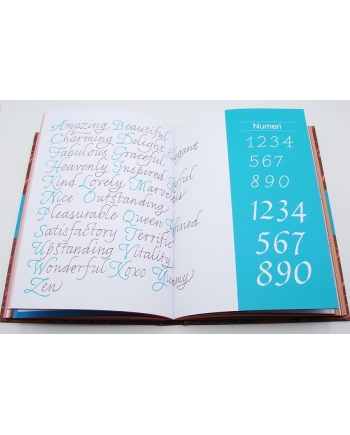 Amazing Beautiful
Charming Delight Elegant
Fabulous Graceful
Heavenly Inspired Joyful
Kind Lovely Marvelous
Nice Outstanding
Pleasurable Queen Refined
Satisfactory Terrific
Upstanding Vitality
Wonderful Xoxo Yummy
Zen
Numeri
1234
567
890
1234
567
890